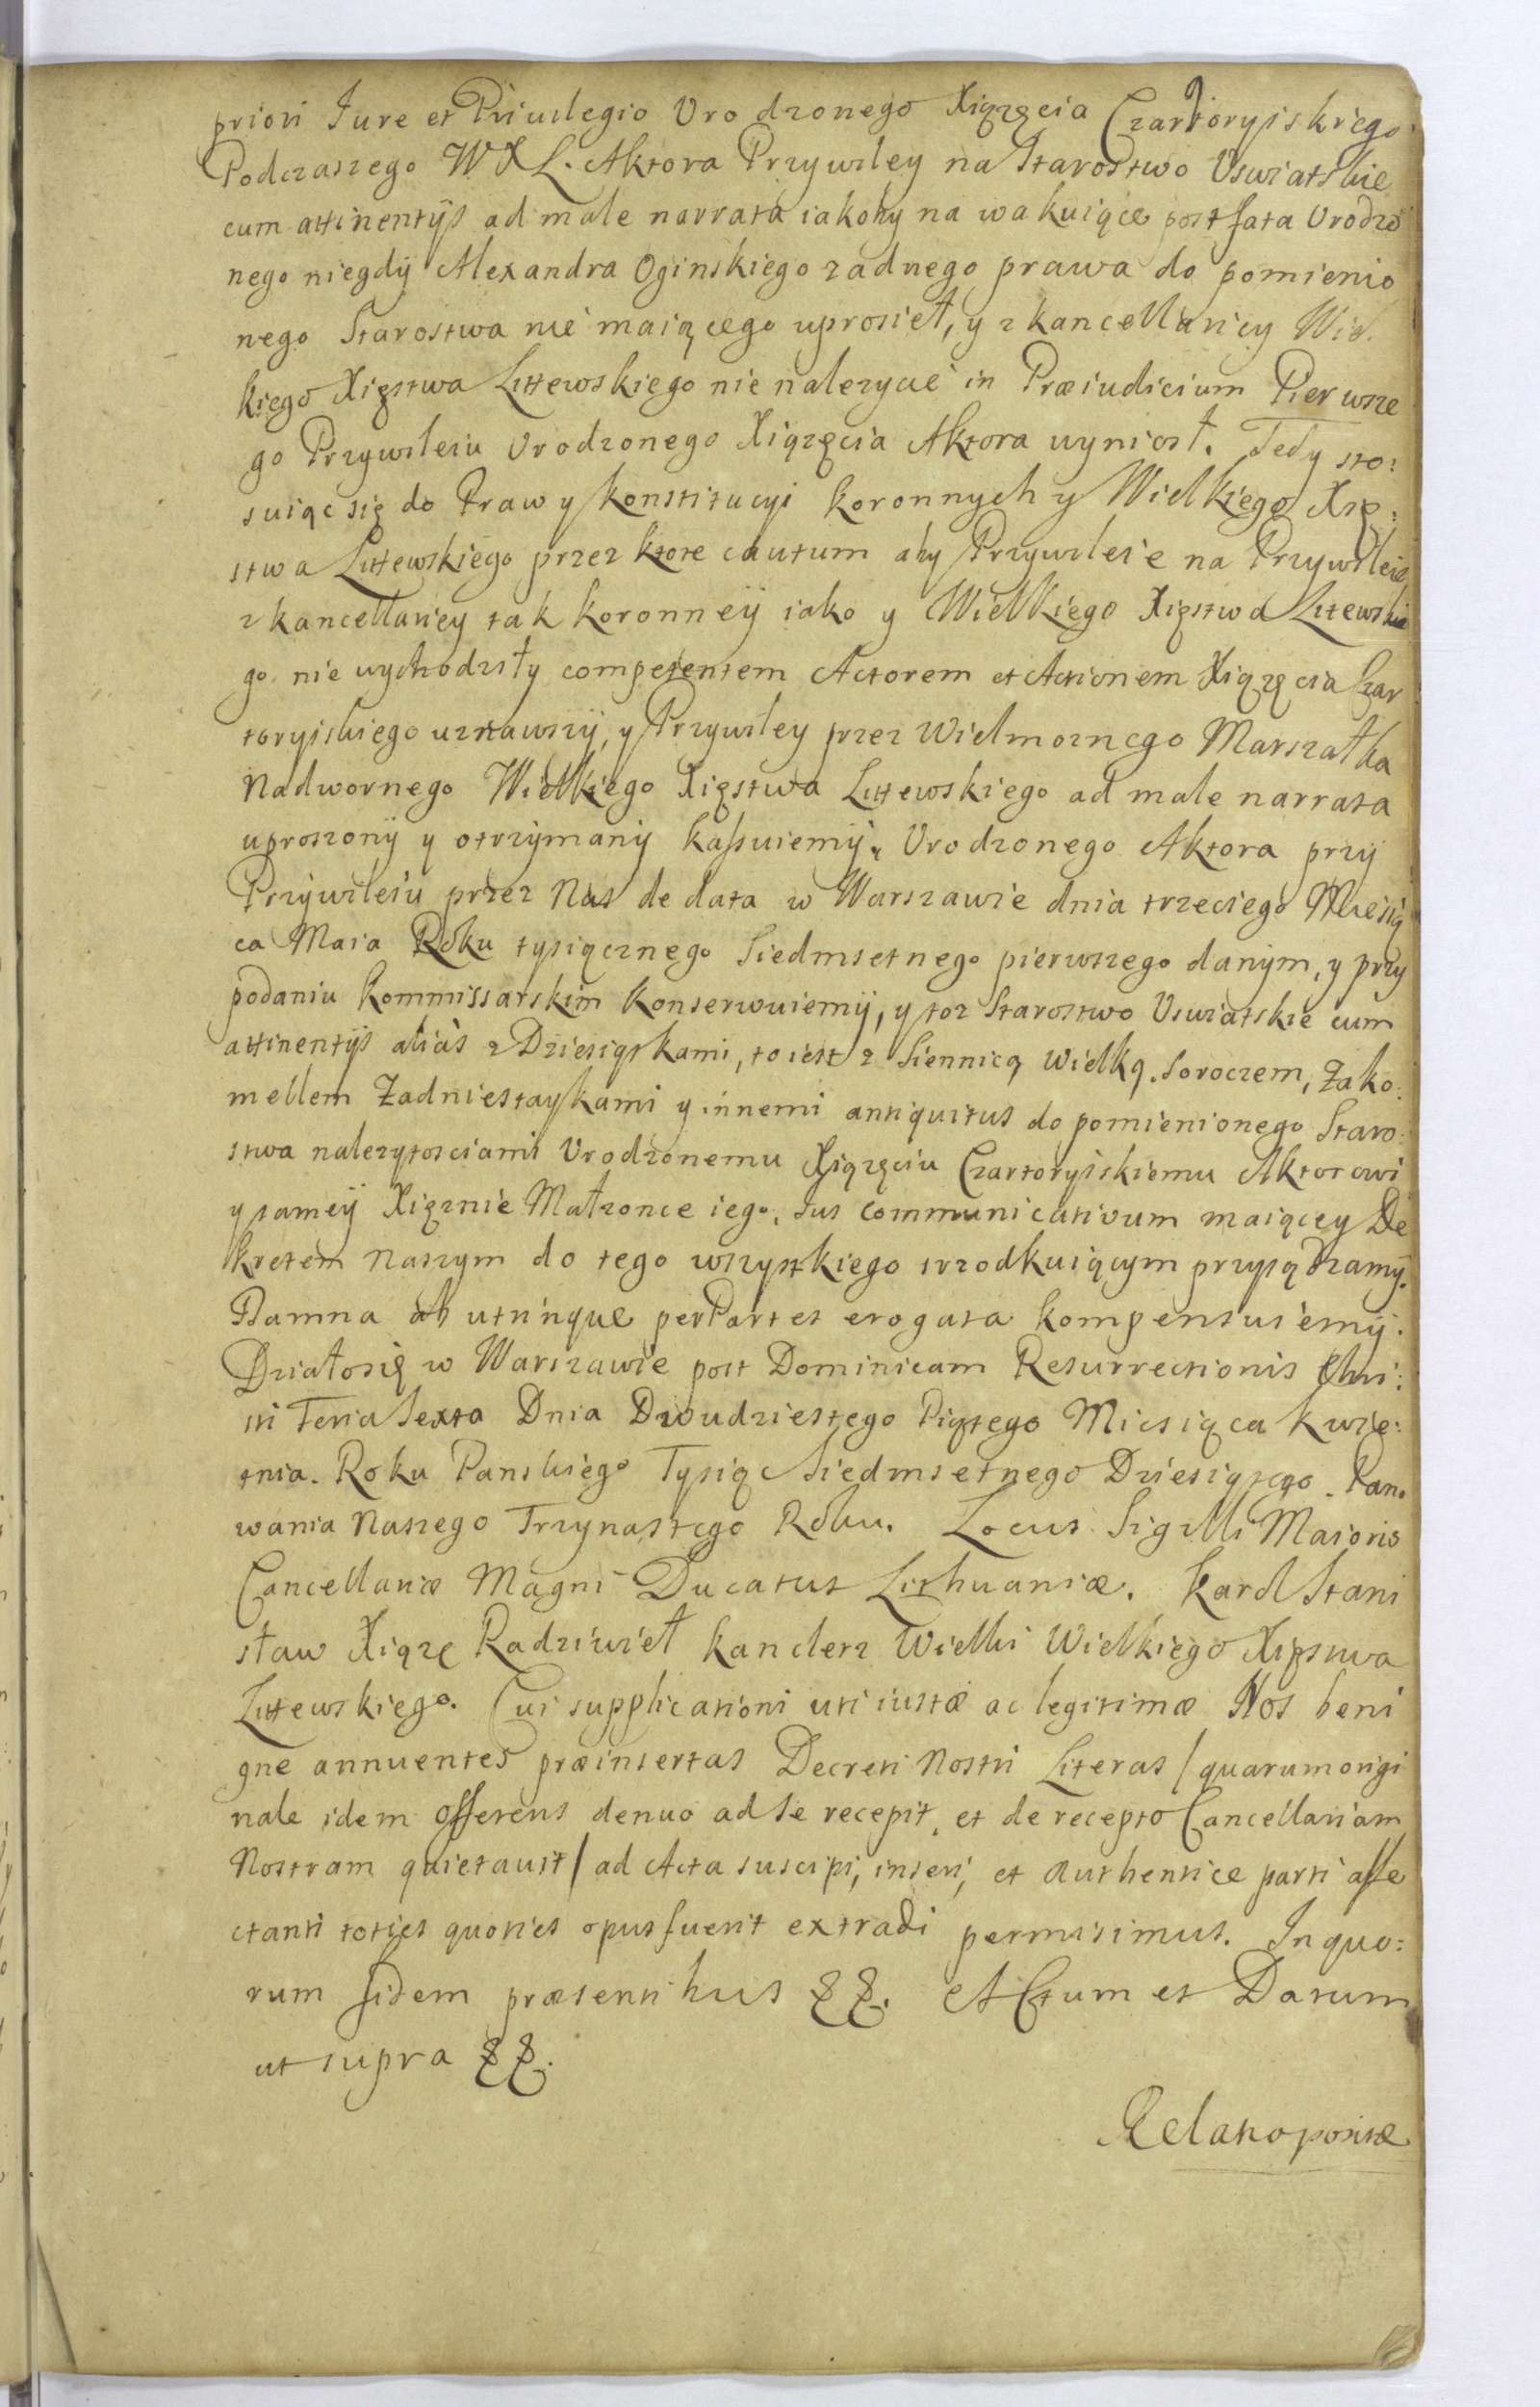 priori Iure et Priuilegio Urodzonego Xiążęcia Czartoryiskiego
Podczaszego W X L. Aktora Przywiley na Starostwo Uswiatskie
cum attinentÿs ad male narrata iakoby na wakuiące post fata Urodzo
nego niegdÿ Alexandra Oginskiego zadnego prawa do pomienio
nego Starostwa nie maiącego uprosieł, y z kancellariey Wiel.
kiego Xięstwa Littewskiego nie nalezycie in Præiudicium Pierwsze
go Przywileiu Urodzonego Xiążęcia Aktora wyniosł. Tedy sto:
suiąc się do Praw y konstitucyi koronnych y Wielkiego Xię:
stwa Littewskiego przez ktore cautum aby Przywileie na Przywileie
z kancellariey tak koronneÿ iako y Wielkiego Xięstwa Litewskie
go nie wychodziły competentem Actorem et Actionem Xiążęcia Czar
toryiskiego uznawszÿ, y Przywiley przez Wielmoznego Marszałka
Nadwornego Wielkiego Xięstwa Littewskiego ad male narrata
uproszonÿ y otrzÿmanÿ kassuiemÿ, Urodzonego Aktora przÿ
Przÿwileiu przez Nas de data w Warszawie dnia trzeciego Miesią
ca Maia Roku tysiącznego Siedmsetnego pierwszego danÿm, y przy
podaniu kommissarskim konserwuiemÿ, y toz Starostwo Uswiatskie cum
attinentÿs aliàs z Dziesiątkami, to iest z Siennicą Wielką. Soroczem, Zako:
mellem Zadniestaykami y innemi antiquitus do pomienionego Staro:
stwa nalezytosciami Urodzonemu Xiążęciu Czartoryiskiemu Aktorowi
y sameÿ Xięznie Małzonce iego, Ius communicativum maiącey De
kretem Naszym do tego wszystkiego srzodkuiącym przysądzamÿ.
Damna ab utrinque per Partes erogata kompensuiemÿ.
Działosię w Warszawie post Dominicam Resurrectionis Chri:
sti Feria Sexta Dnia Dwudziestego Piątego Miesiąca kwie:
tnia. Roku Panskiego Tysiąc Siedmsetnego Dziesiątego. Pano
wania Naszego Trzynastego Roku. Locus Sigilli Maioris
Cancellariæ Magni Ducatus Lithuaniæ. Karol Stani
sław Xiąże Radziwieł kanclerz Wielki Wielkiego Xięstwa
Littewskiego. Cui supplicationi uti iustæ ac legitimæ Nos beni
gne annuentes præinsertas Decreti Nostri Literas / quarum origi
nale idem offerens denuo ad se recepit, et de recepto Cancellariam
Nostram quietauit / ad Acta suscipi, inseri, et authentice parti affe
ctanti toties quoties opus fuerit extradi permisimus. In quo:
rum fidem præsentibus &&. Actum et Datum
ut supra &&.